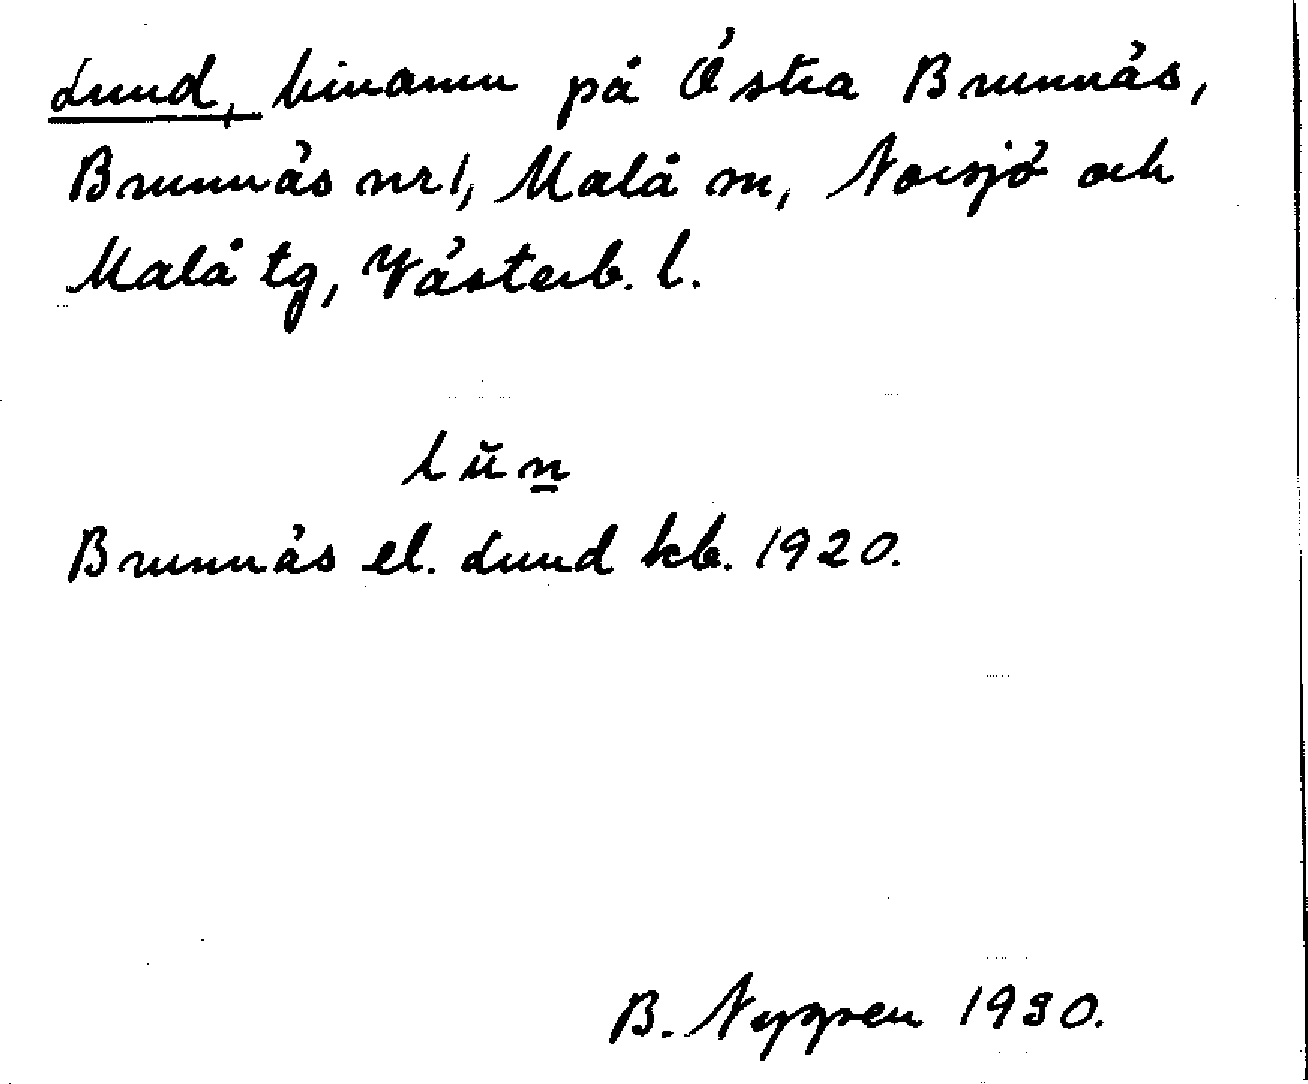 Lund, binamn på Östra Brunnäs,
Brunnäs nr 1, Malå sn, Norsjö och
Malå tg, Västerb. l.
lŭn̲
Brunnäs el. Lund kb. 1920.
B. Nygren 1930.